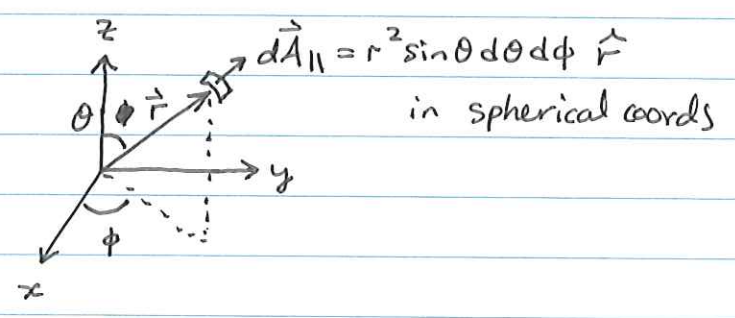 z
dA⃗∥ = r² sinθ dθ dϕ r̂
θ r⃗
in spherical coords
y
ϕ
x